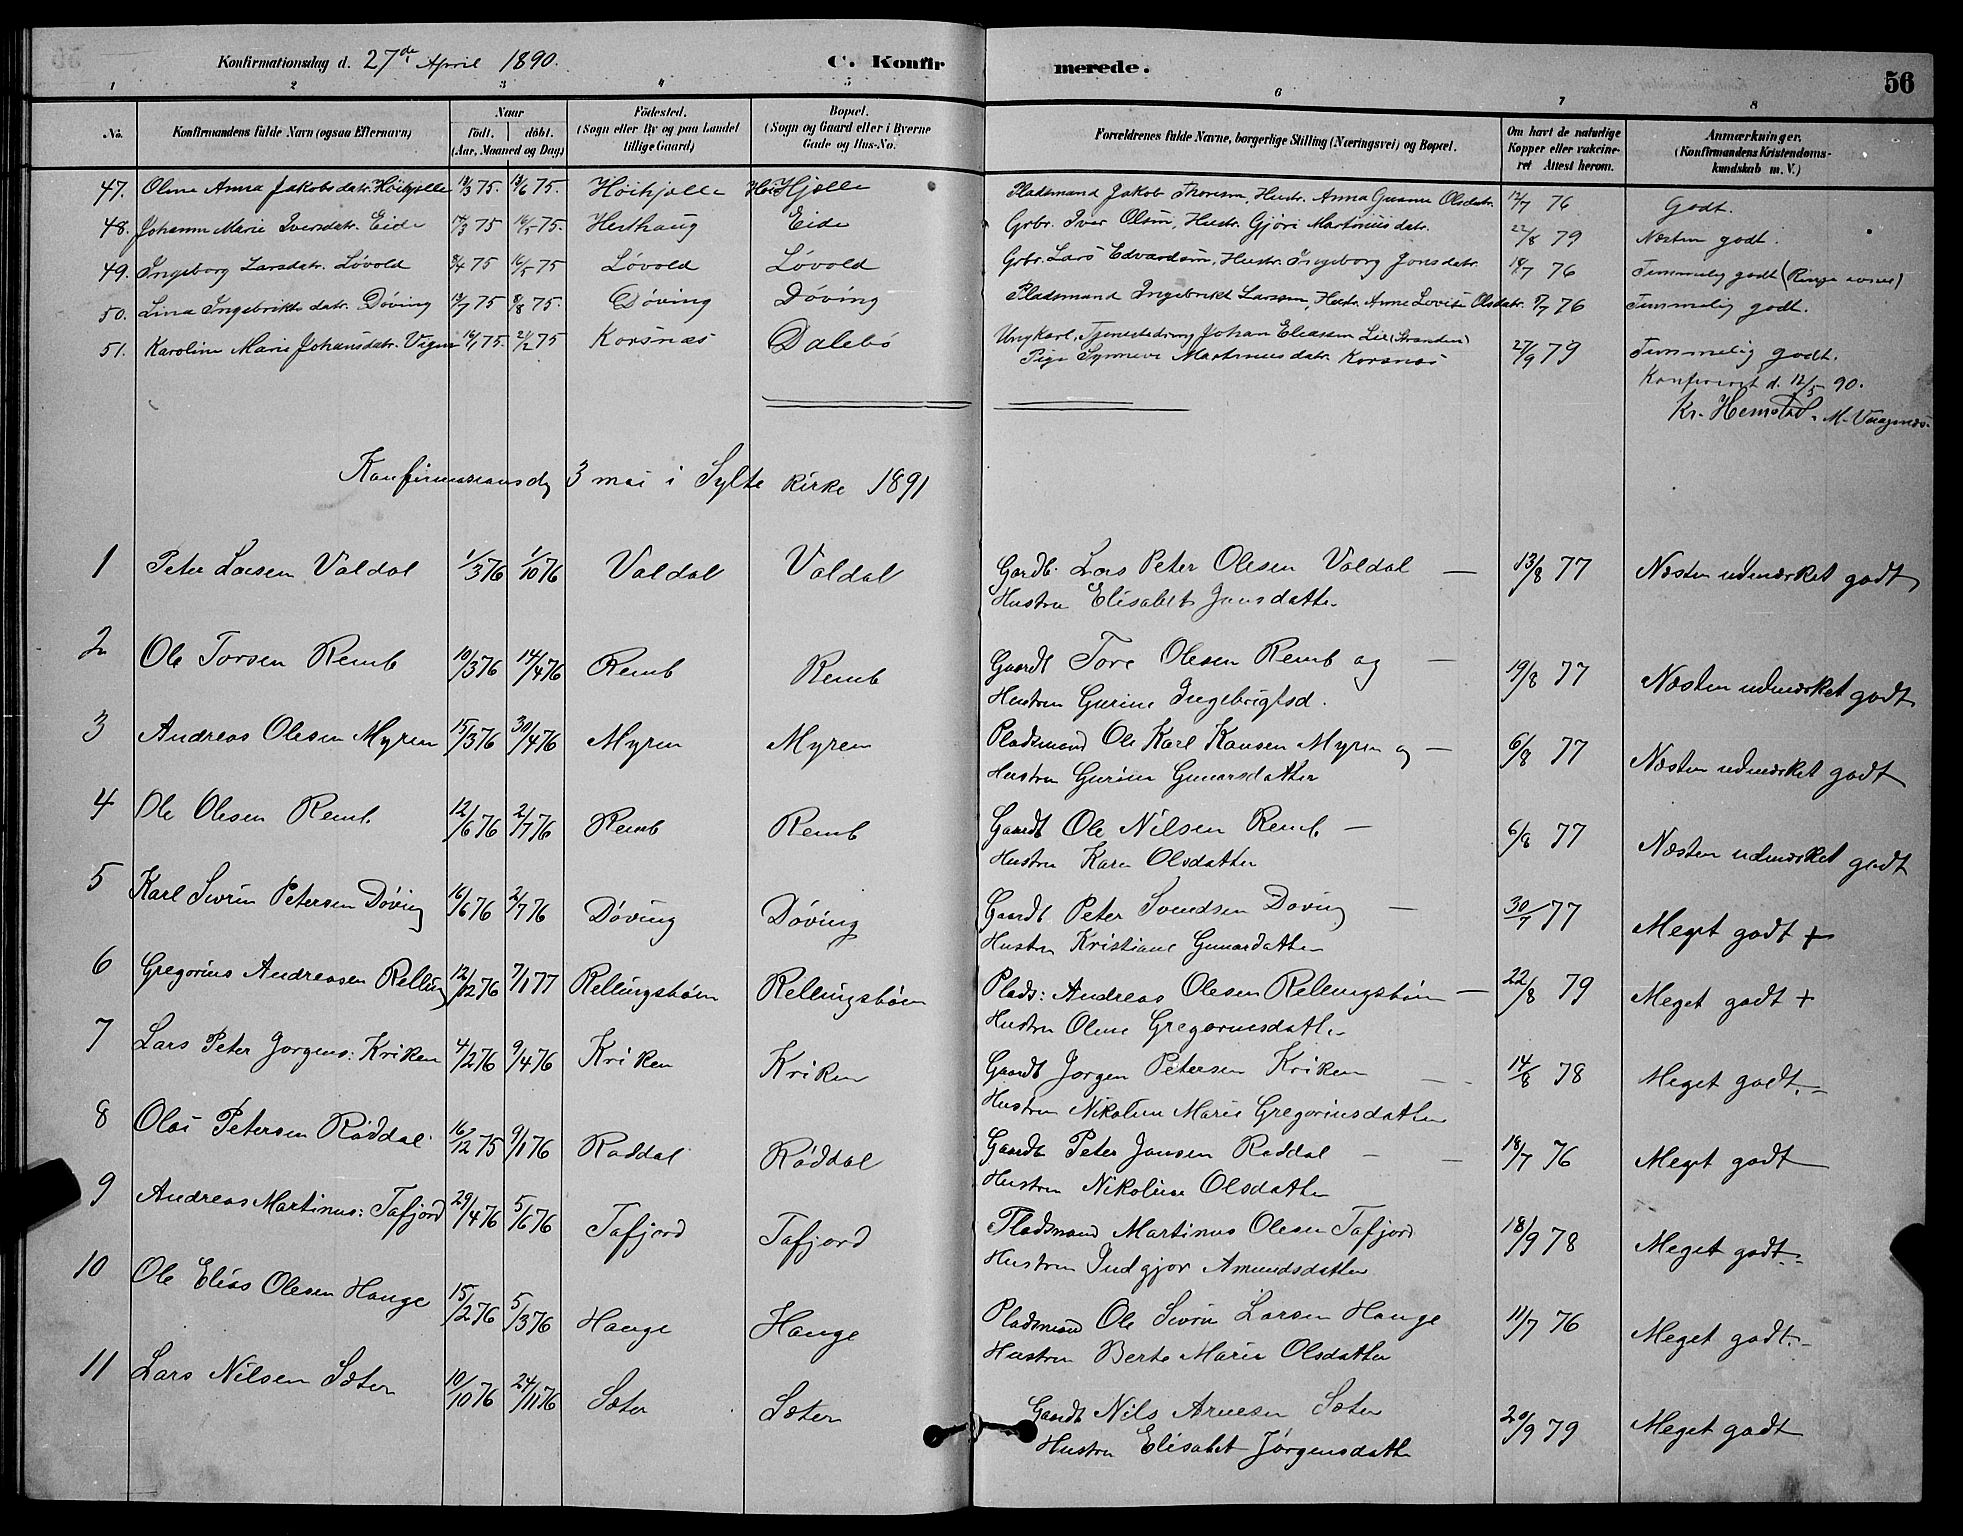 Konfirmationsdag d. 27de April 1890. C. Konfirmerede. 56
1 2 3 4 5 6 7 8
No. Konfirmandens fulde Navn (ogsaa Efternavn) Naar født. døbt. (Aar, Maaned og Dag) Födested. (Sogn eller By og paa Landet tillige Gaard) Bopæl. (Sogn og Gaard eller i Byerne Gade og Hus-No. Forældrenes fulde Navne, borgerlige Stilling (Næringsvei) og Bopæl. Om havt de naturlige Kopper eller vakcineret Attest herom. Anmærkninger. (Konfirmandens Kristendomskundskab m. V.)
47. Oline Anna Jakobsdatr. Höihjelle 75. 75. Höihjelle Höihjelle Pladsmand Jakob Thoresen, Hustr. Anna Olsdatr. 12/7 76 Godt.
48. Johanne Marie Iversdatr. Eide 75 75. Hesthaug Eide Grbr. Iver Olsen, Hustr. Gjöri Martinusdatr. 22/8 79 Næsten godt.
49. Ingeborg Larsdatr. Lövold 75 16/5 75 Lövold Lövold Grbr. Lars Edvardsen, Hustr. Ingeborg Jonsdatr. 76 Temmelig godt (Ringe)
50. Lina Ingebriktsdatr. Döving 75 8/8 75. Döving Döving Pladsmand Ingebrikt Larssen, Hustr. Anne Lovise Olsdatr. 76 Temmelig godt.
51. Karoline Marie Johansdatr. 75. 21/2 75 Korsnæs Dalebö Ungkarl, Johan Eliassen Lie (Stranden)
Pige Synneve Martinusdatr. Korsnæs 27/9 79 Temmelig godt.
Konfereret d. 12/5 90.
Kr. Hemstad. M. Vaagsnæs
Konfirmasionsdg 3 mai i Sylte Kirke 1891
1 Peter Larsen Valdal 1/3 76 1/10 76 Valdal Valdal Gardb. Lars Peter Olesen Valdal — 13/8 77 Næsten udmærket godt
Hustru Elisabet Jonsdatter
2 Ole Torsen Remb 10/3 76 14/4 76 Remb Remb Gaardb Tore Olesen Remb og — 19/8 77 Næsten udmærket godt
Hustru Gurine Ingebrigtsd.
3 Andreas Olesen Myren 15/3 76 30/4 76 Myren Myren Pladsmand Ole Karl Hansen Myren og — 6/8 77 Næsten udmærket godt
Hustru Gurine Gunarsdatter
4 Ole Olesen Remb. 12/6 76 2/7 76 Remb Remb Gaardb Ole Nilsen Remb — 6/8 77 Næsten udmærket godt
Hustru Karen Olsdatter
5 Karl Sivrin Petersen Döving 16/6 76 2/7 76 Döving Döving Gaardb Peter Svendsen Döving — 30/7 77 Meget godt +
Hustru Kristiane Gunardatter
6 Gregorius Andreasen Relling 12/12 76 7/1 77 Rellingsböen Rellingsböen Plads: Andreas Olesen Rellingsböen — 22/8 79 Meget godt +
Hustru Oline Gregoriusdatter
7 Lars Peter Jorgens: Kriken 4/2 76 9/4 76 Kriken Kriken Gaardb Jorgen Petersen Kriken — 14/8 78 Meget godt. -
Hustru Nikoline Marie Gregoriusdatter
8 Olai Petersen Röddal 16/12 75 9/1 76 Raddal Röddal Gaardb Peter Jonsen Raddal — 18/7 76 Meget godt —
Hustru Nikoline Olsdatter
9 Andreas Martinus: Tafjord 29/4 76 5/6 76 Tafjord Tafjord Pladsmand Martinus Olesen Tafjord 18/9 78 Meget godt. -
Hustru Indgjör Amundsdatter
10 Ole Elias Olesen Hauge 15/2 76 5/3 76 Hauge Hauge Pladsmand Ole Sivrin Larsen Hauge 11/7 76 Meget godt. -
Hustru Berte Marie Olsdatter
11 Lars Nilsen Sæter 10/10 76 24/11 76 Sæter Sæter Gaardb Nils Arnesen Sæter 20/9 79 Meget godt
Hustru Elisabet Jörgensdatte